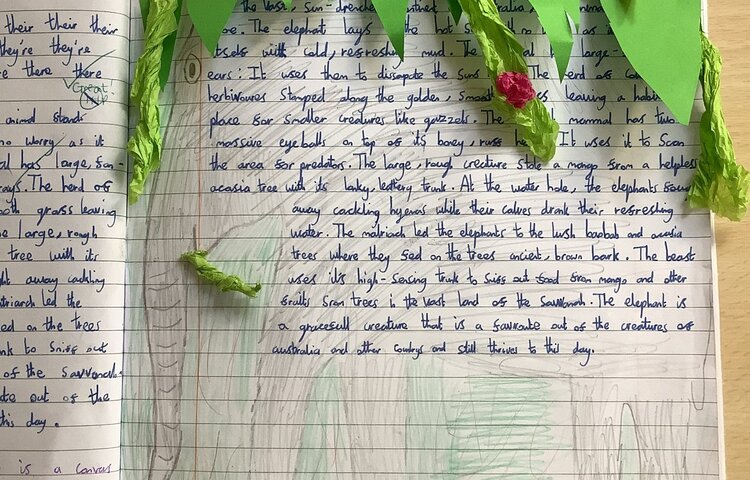 their their their
they're they're
there there
Great
animal stands
no worry as it
has large, fan-
rays. The herd of
grass leaving
large, rough
tree with its
away cackling
the
on the trees
to sniff out
of the Savvanah
out of the
this day.
is a canvas
the vast, sun-drenched
The elephant lays the hot
itself with cold, refreshing mud. The large-
ears: It uses them to dissapate the suns The herd of
herbivours stamped along the golden, smooth leaving a
place for smaller creatures like gazzels. The mammal has two
massive eyeballs on top of its boney, It uses it to scan
the area for predators. The large, rough creature stole a mango from a helpless
acasia tree with its lanky, trunk. At the water hole, the elephants
away cackling hyenas while their calves drank their refreshing
water. The matriach led the elephants to the lush baobab and acasia
trees where they fed on the trees ancient, brown bark. The beast
uses it's high-sensing trunk to sniff out food from mango and other
fruits from trees in the vast land of the Savvanah. The elephant is
a gracefull creature that is a favroute out of the creatures of
australia and other countrys and still thrives to this day.